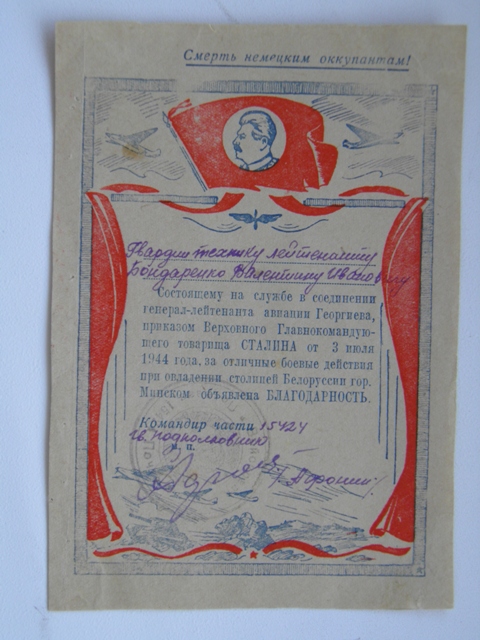 Смерть немецким оккупантам!
Гвардии технику лейтенанту
Бондаренко Валентину Ивановичу
Состоящему на службе в соединении
генерал-лейтенанта авиации Георгиева,
приказом Верховного Главнокомандую-
щего товарища СТАЛИНА от 3 июля
1944 года, за отличные боевые действия
при овладении столицей Белоруссии гор.
Минском объявлена БЛАГОДАРНОСТЬ.
Командир части 15424
Гв. подполковник
м. п.